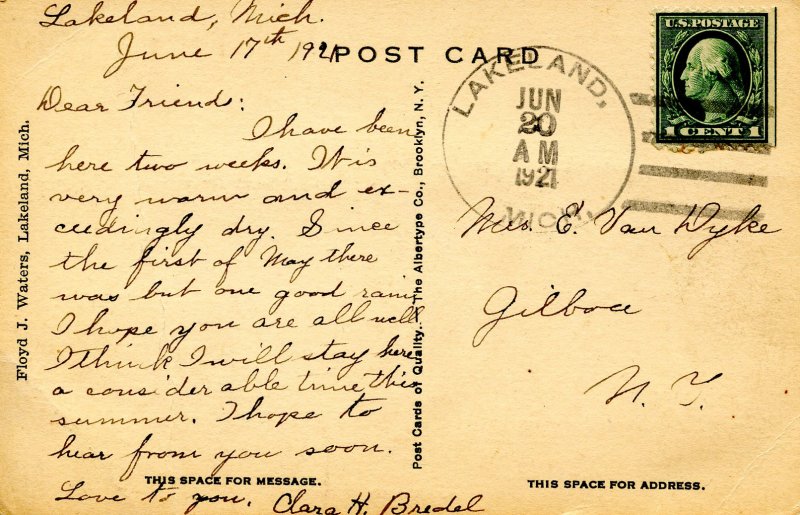 Lakeland, Mich.
June 17th 1921
POST CARD
Dear Friend:
I have been
here two weeks. It is
very warm and ex-
ceedingly dry. Since
the first of May there
was but one good rain.
I hope you are all well
I think I will stay here
a considerable time this
summer. I hope to
hear from you soon.
THIS SPACE FOR MESSAGE.
Love to you. Clara H. Bredel
Floyd J. Waters, Lakeland, Mich.
Post Cards of Quality. The Albertype Co., Brooklyn, N. Y.
LAKELAND,
JUN
20
AM
1921
MICH.
U.S. POSTAGE
1 CENT 1
Mrs. E. Van Dyke
Gilboa
N. Y.
THIS SPACE FOR ADDRESS.